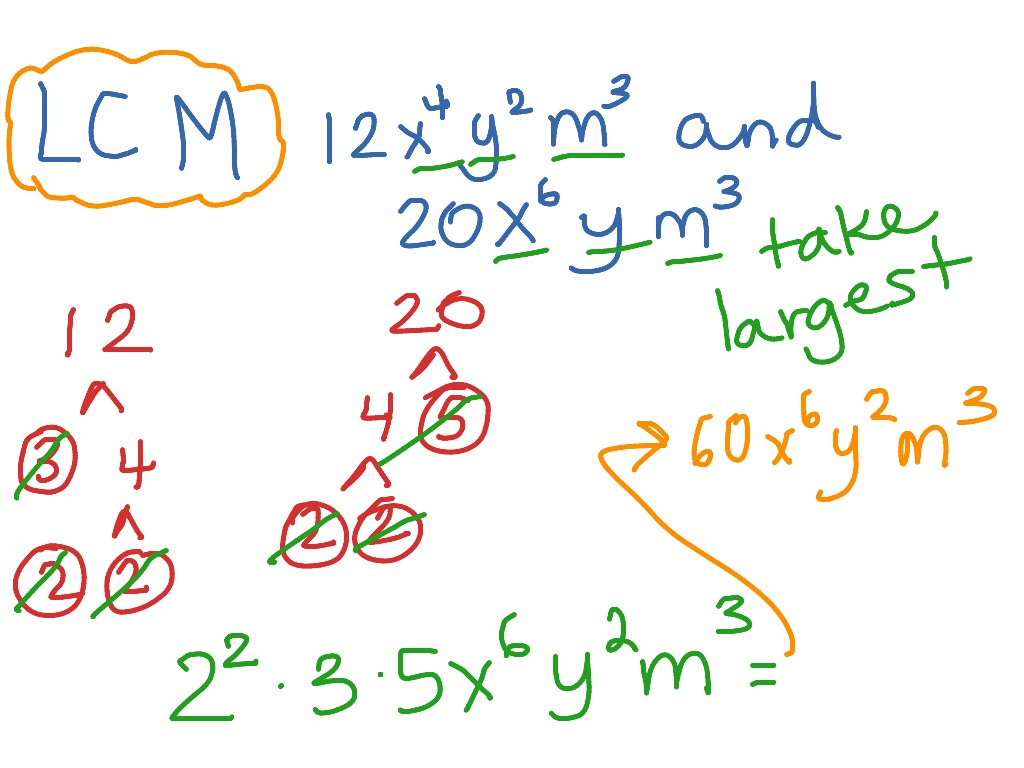 LCM 12x⁴y²m³ and
20x⁶ym³ take
largest
12 20
4 5
3 4
2 2
2 2
60x⁶y²m³
2² · 3 · 5x⁶y²m³ =